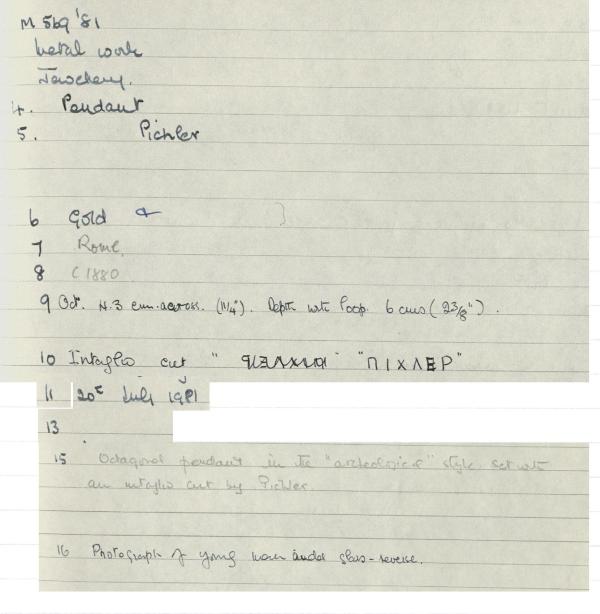 M 569 '81
Metal work
Jewellery.
4. Pendant
5. Pichler
6 Gold &
7 Rome,
8 C 1880
9 Oct. 4.3 cm. across. (1¼"). Depth with loop. 6 cms (2 3/8").
10 Intaglio cut " " "ΠΙΧΛΕΡ"
11 20c July 1981
13
15 Octagonal pendant in the "archeological" style set with
an intaglio cut by Pichler.
16 Photograph of young man under glass - reverse.